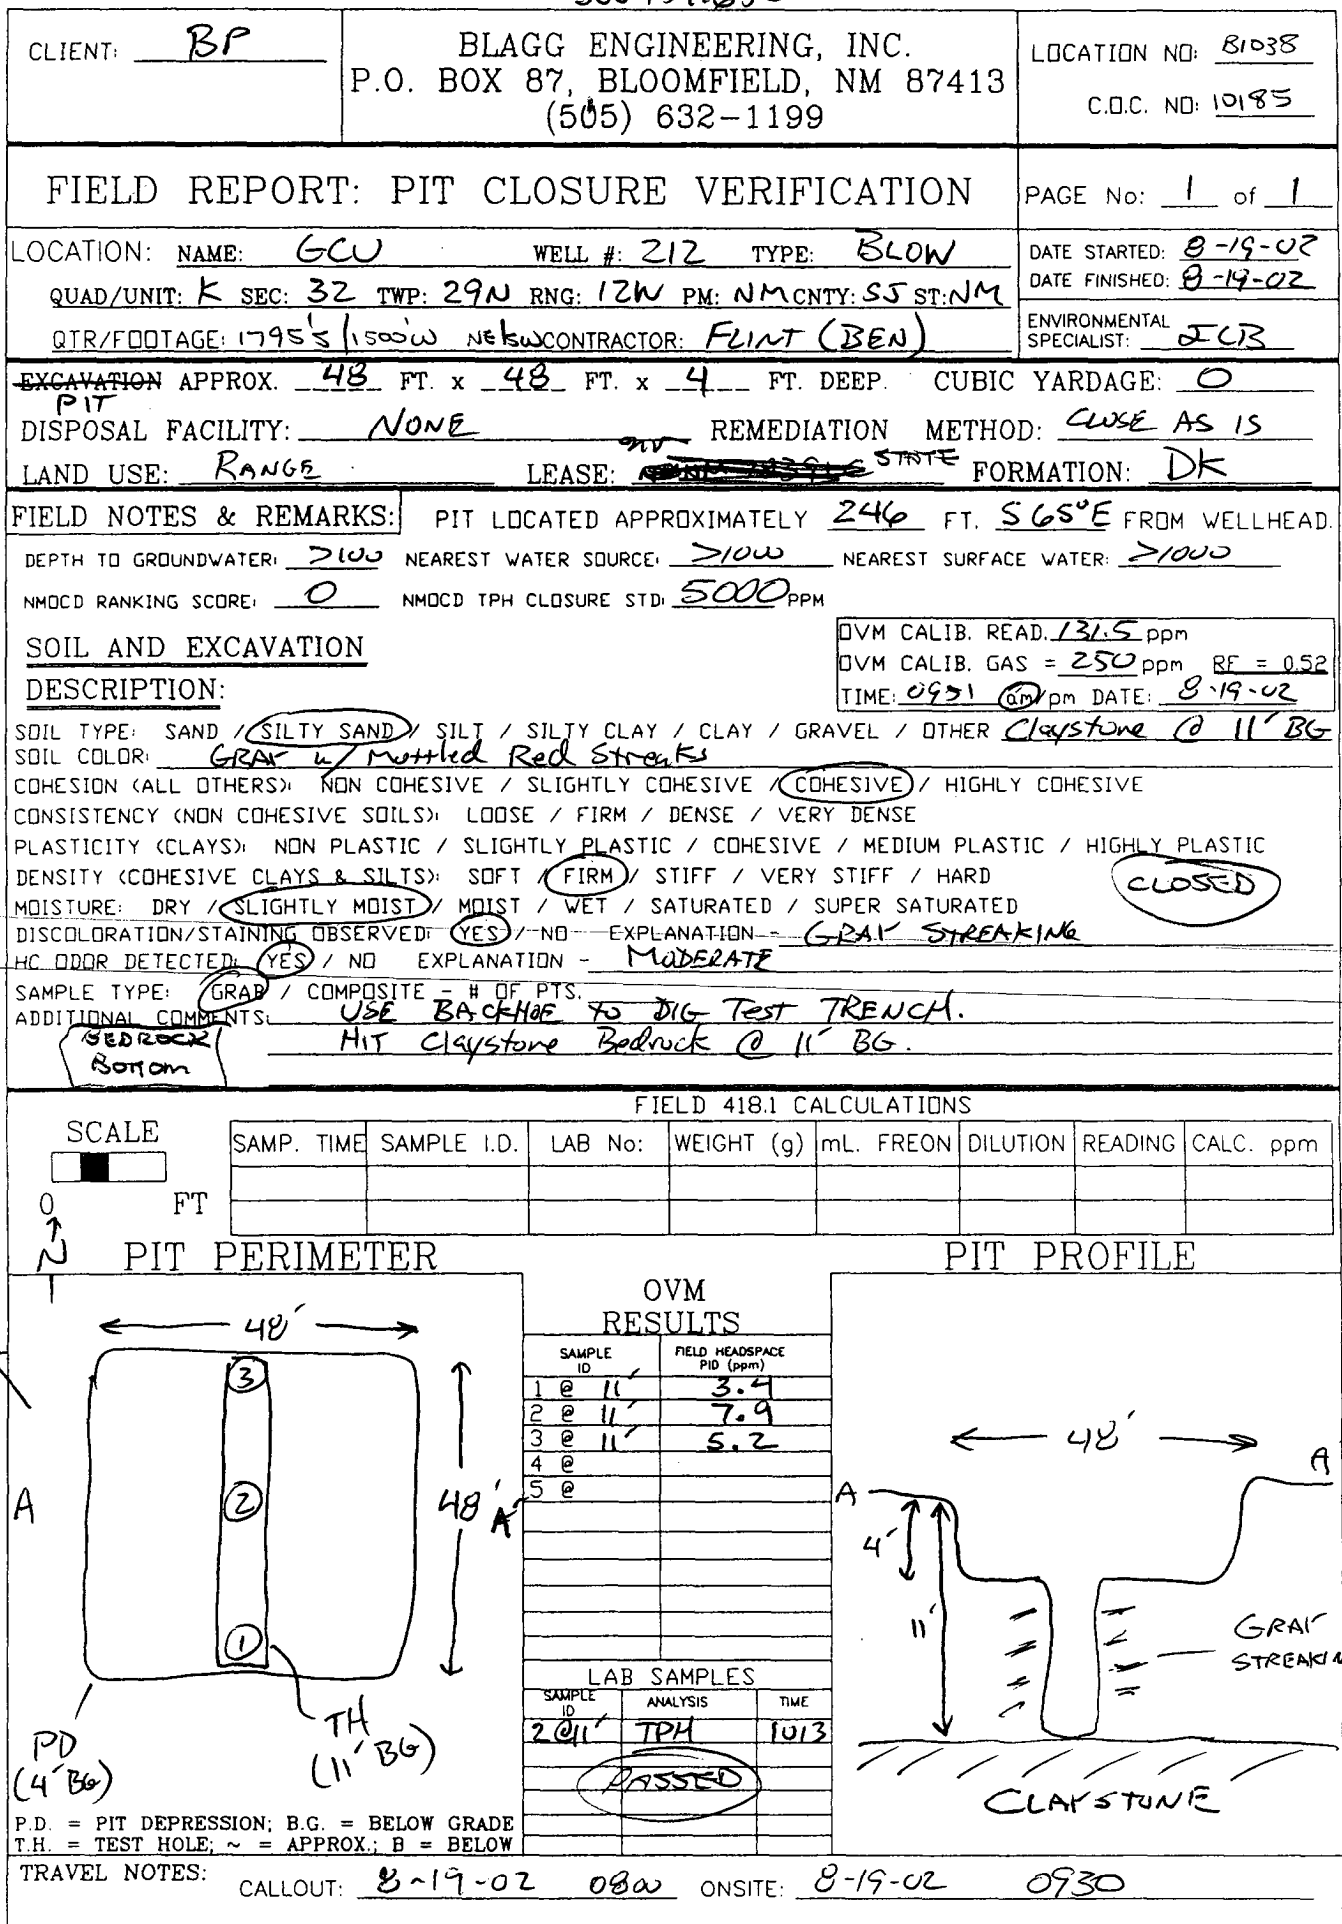 CLIENT: BP
BLAGG ENGINEERING, INC.
P.O. BOX 87, BLOOMFIELD, NM 87413
(505) 632-1199
LOCATION NO: B1038
C.O.C. NO: 10185
FIELD REPORT: PIT CLOSURE VERIFICATION
PAGE No: 1 of 1
LOCATION: NAME: GCU WELL #: 212 TYPE: BLOW
QUAD/UNIT: K SEC: 32 TWP: 29N RNG: 12W PM: NM CNTY: SJ ST: NM
QTR/FOOTAGE: 1795's/1500'w NE/SW CONTRACTOR: FLINT (BEN)
DATE STARTED: 8-19-02
DATE FINISHED: 8-19-02
ENVIRONMENTAL
SPECIALIST: JCB
EXCAVATION APPROX. 48 FT. x 48 FT. x 4 FT. DEEP. CUBIC YARDAGE: 0
PIT
DISPOSAL FACILITY: NONE REMEDIATION METHOD: CLOSE AS IS
LAND USE: RANGE LEASE: STATE FORMATION: DK
FIELD NOTES & REMARKS: PIT LOCATED APPROXIMATELY 246 FT. S65°E FROM WELLHEAD.
DEPTH TO GROUNDWATER: >100 NEAREST WATER SOURCE: >1000 NEAREST SURFACE WATER: >1000
NMOCD RANKING SCORE: 0 NMOCD TPH CLOSURE STD: 5000 PPM
SOIL AND EXCAVATION
DESCRIPTION:
OVM CALIB. READ. 131.5 ppm
OVM CALIB. GAS = 250 ppm RF = 0.52
TIME: 0931 am/pm DATE: 8-19-02
SOIL TYPE: SAND / SILTY SAND / SILT / SILTY CLAY / CLAY / GRAVEL / OTHER Claystone @ 11' BG
SOIL COLOR: GRAY w/ Mottled Red Streaks
COHESION (ALL OTHERS): NON COHESIVE / SLIGHTLY COHESIVE / COHESIVE / HIGHLY COHESIVE
CONSISTENCY (NON COHESIVE SOILS): LOOSE / FIRM / DENSE / VERY DENSE
PLASTICITY (CLAYS): NON PLASTIC / SLIGHTLY PLASTIC / COHESIVE / MEDIUM PLASTIC / HIGHLY PLASTIC
DENSITY (COHESIVE CLAYS & SILTS): SOFT / FIRM / STIFF / VERY STIFF / HARD
CLOSED
MOISTURE: DRY / SLIGHTLY MOIST / MOIST / WET / SATURATED / SUPER SATURATED
DISCOLORATION/STAINING OBSERVED: YES / NO EXPLANATION - GRAY STREAKING
HC ODOR DETECTED: YES / NO EXPLANATION - MODERATE
SAMPLE TYPE: GRAB / COMPOSITE - # OF PTS.
ADDITIONAL COMMENTS: USE BACKHOE TO DIG Test TRENCH.
HIT Claystone Bedrock @ 11' BG.
BEDROCK
Bottom
FIELD 418.1 CALCULATIONS
SCALE
0 FT
SAMP. TIME SAMPLE I.D. LAB No: WEIGHT (g) mL. FREON DILUTION READING CALC. ppm
N
PIT PERIMETER
PIT PROFILE
48'
3
2
1
48'
A
A'
PD
(4' BG)
TH
(11' BG)
P.D. = PIT DEPRESSION; B.G. = BELOW GRADE
T.H. = TEST HOLE; ~ = APPROX.; B = BELOW
OVM
RESULTS
SAMPLE ID FIELD HEADSPACE PID (ppm)
1 @ 11' 3.4
2 @ 11' 7.9
3 @ 11' 5.2
4 @
5 @
LAB SAMPLES
SAMPLE ID ANALYSIS TIME
2@11' TPH 1013
PASSED
48'
A
A
4'
11'
GRAY
STREAKIN
CLAYSTONE
TRAVEL NOTES: CALLOUT: 8-19-02 0800 ONSITE: 8-19-02 0930